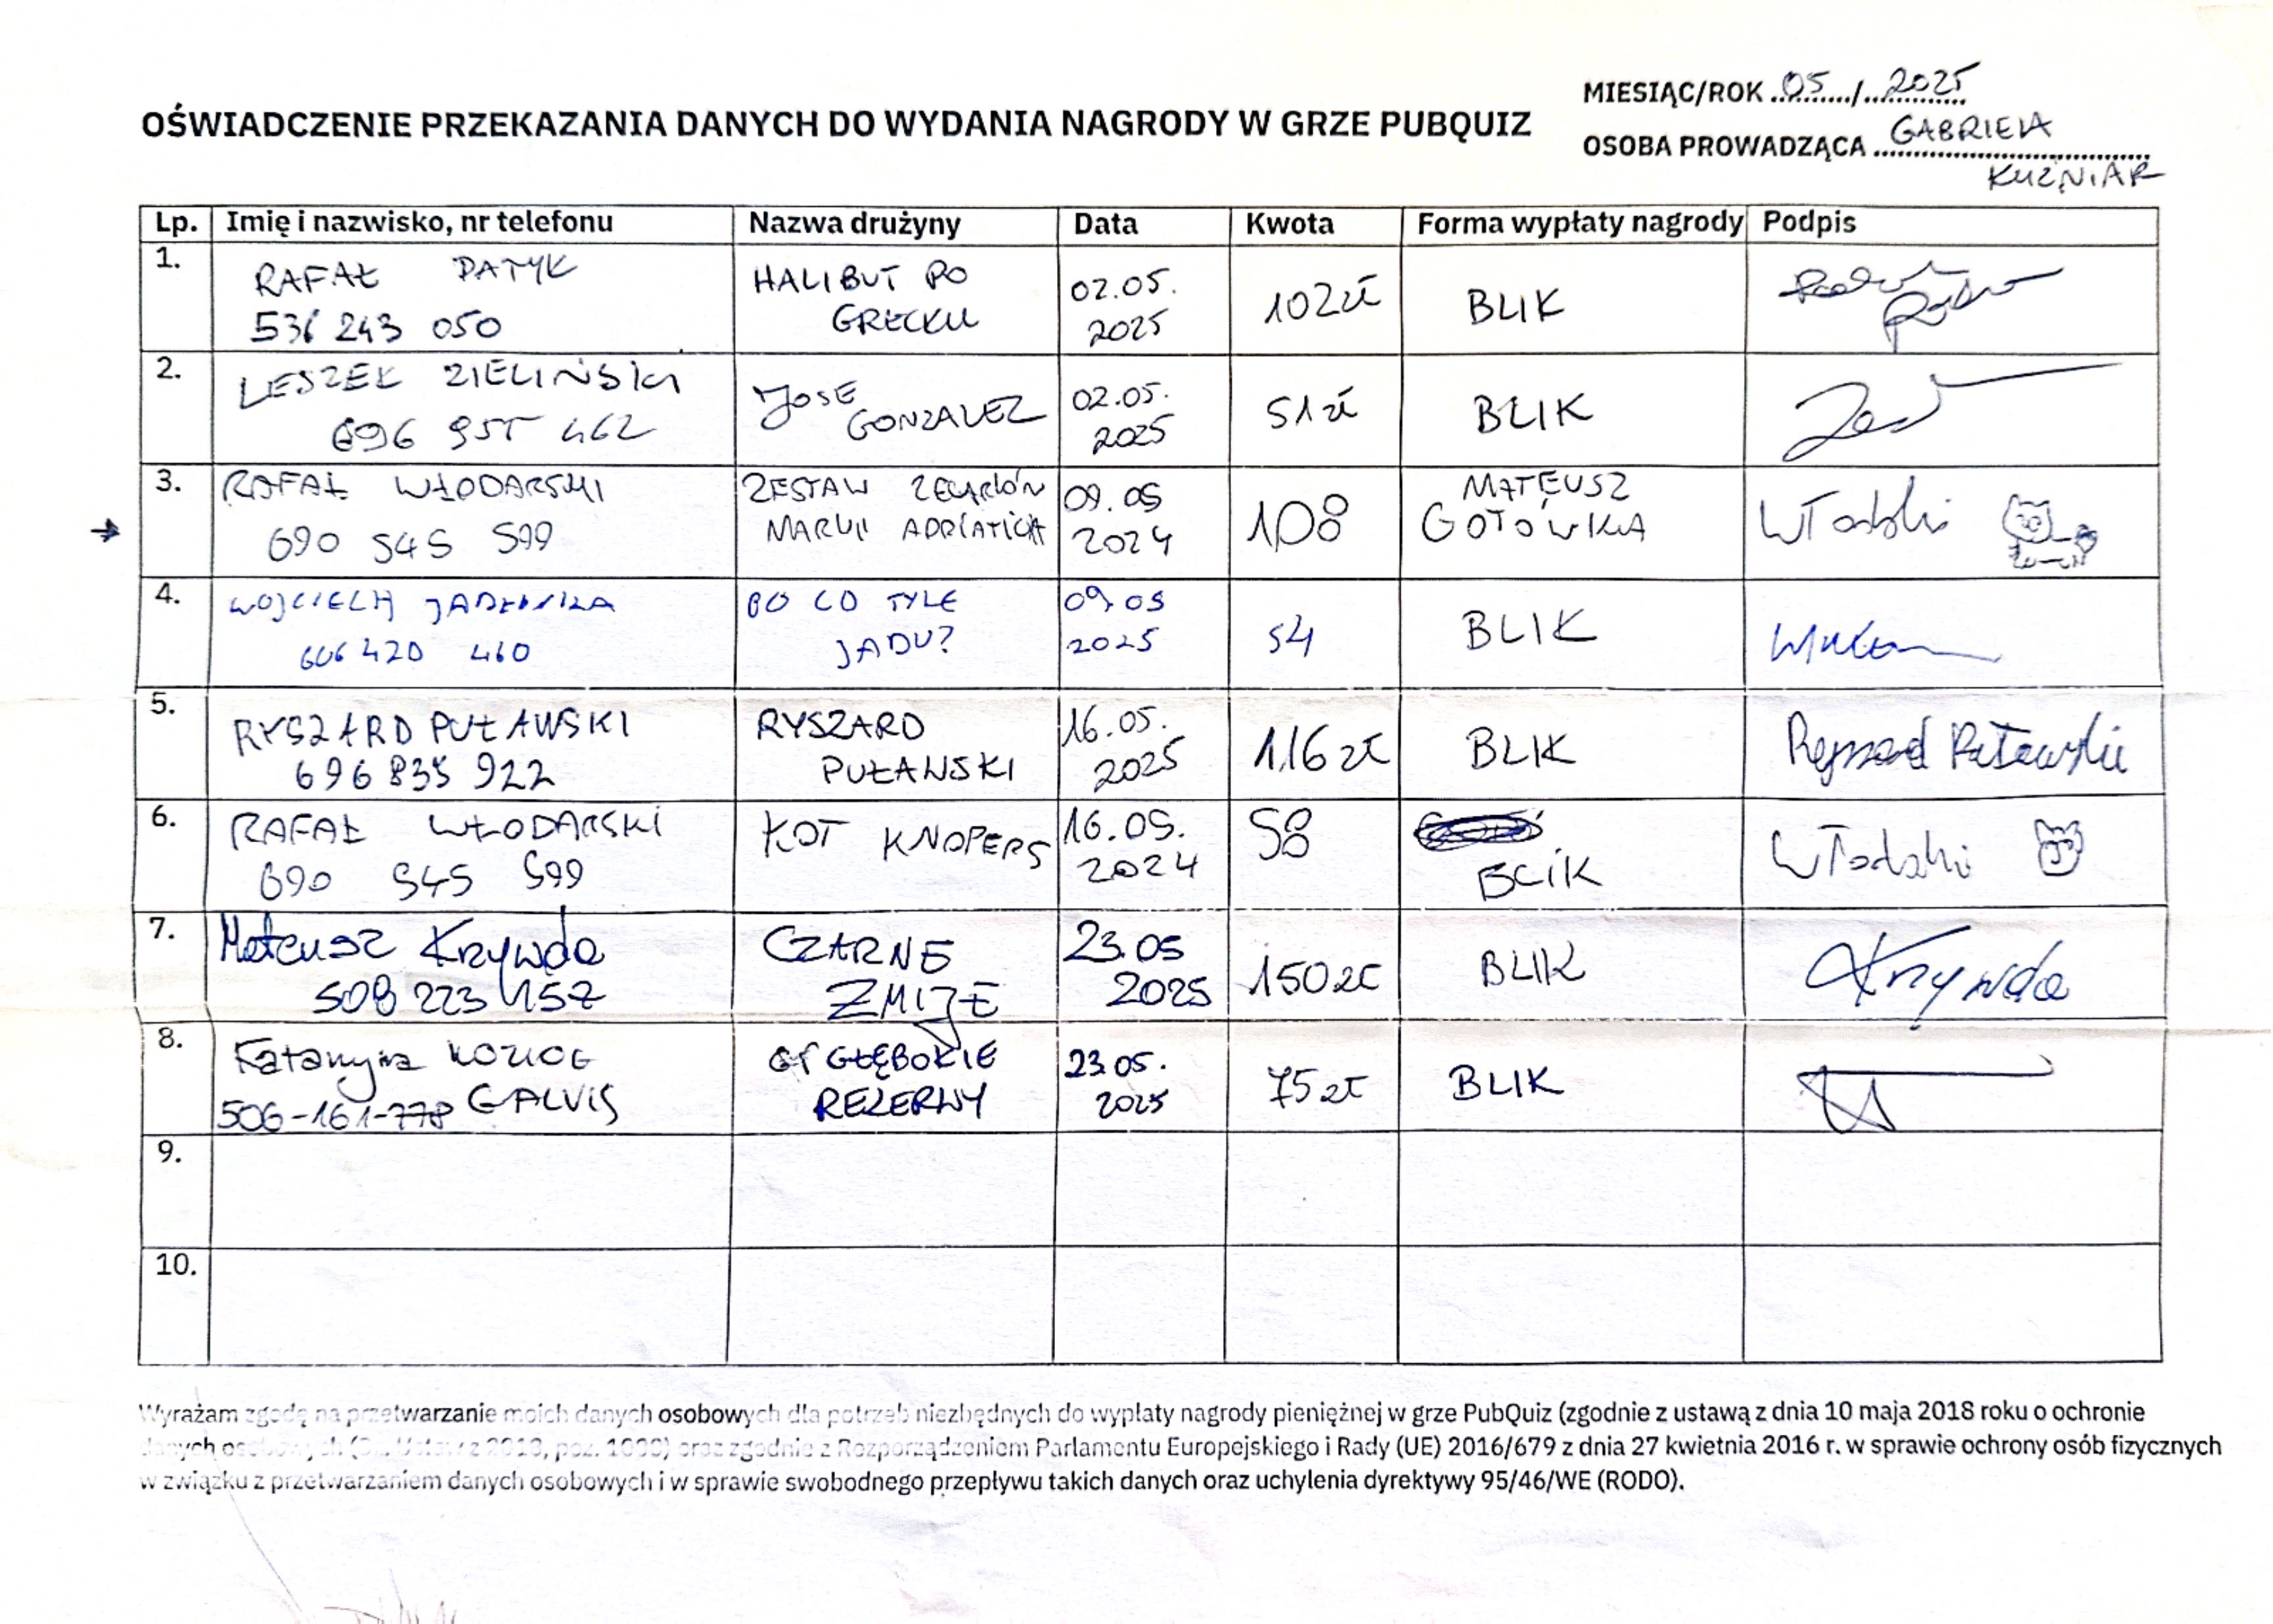 OŚWIADCZENIE PRZEKAZANIA DANYCH DO WYDANIA NAGRODY W GRZE PUBQUIZ
MIESIĄC/ROK 05 / 2025
OSOBA PROWADZĄCA GABRIELA
KUŹNIAR
Lp. Imię i nazwisko, nr telefonu Nazwa drużyny Data Kwota Forma wypłaty nagrody Podpis
1. RAFAŁ PATYK HALIBUT PO 02.05. 102 zł BLIK
536 243 050 GRECKU 2025
2. LESZEK ZIELIŃSKI JOSE 02.05. 51 zł BLIK
696 955 462 GONZALEZ 2025
3. RAFAŁ WŁODARSKI ZESTAW ZEGARKÓW 09.05 108 MATEUSZ
690 545 599 MARKI ADRIATICA 2024 GOTÓWKA
4. WOJCIECH PO CO TYLE 09.05 54 BLIK
606 420 460 JADU? 2025
5. RYSZARD PUŁAWSKI RYSZARD 16.05. 116 zł BLIK Ryszard Puławski
696 835 922 PUŁAWSKI 2025
6. RAFAŁ WŁODARSKI KOT KNOPERS 16.05. 58
690 545 599 2024 BLIK
7. Mateusz Krzywda CZARNE 23.05 150 zł BLIK Krzywda
508 223 157 ŻMIJE 2025
8. Katarzyna KOZIOŁ GŁĘBOKIE 23.05. 75 zł BLIK
506-161-778 GALVIS REZERWY 2025
9.
10.
Wyrażam zgodę na przetwarzanie moich danych osobowych dla potrzeb niezbędnych do wypłaty nagrody pieniężnej w grze PubQuiz (zgodnie z ustawą z dnia 10 maja 2018 roku o ochronie
danych osobowych (Dz. Ustaw z 2018, poz. 1000) oraz zgodnie z Rozporządzeniem Parlamentu Europejskiego i Rady (UE) 2016/679 z dnia 27 kwietnia 2016 r. w sprawie ochrony osób fizycznych
w związku z przetwarzaniem danych osobowych i w sprawie swobodnego przepływu takich danych oraz uchylenia dyrektywy 95/46/WE (RODO).